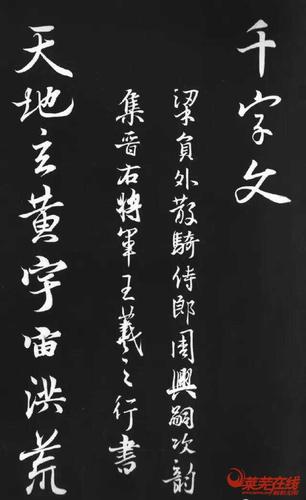 千字文
梁負外散騎侍郎周興嗣次韵
集晋右将軍王羲之行書
天地玄黄宇宙洪荒
莱芜在线